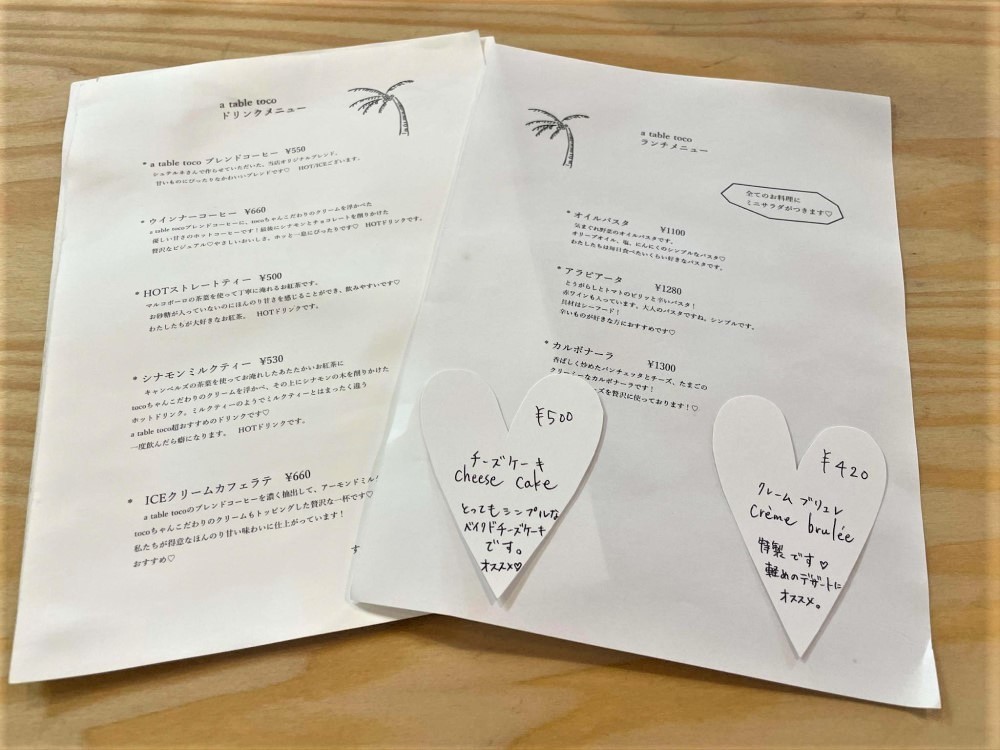 a table toco
ドリンクメニュー
* a table toco ブレンドコーヒー ¥550
シュテルネさんで作らせていただいた、当店オリジナルブレンド。
甘いものにぴったりなかわいいブレンドです♡ HOT/ICEございます。
* ウインナーコーヒー ¥660
a table tocoブレンドコーヒーに、tocoちゃんこだわりのクリームを浮かべた
優しい甘さのホットコーヒーです！最後にシナモンとチョコレートを削りかけた
贅沢なビジュアル♡やさしいおいしさ、ホッと一息にぴったりです♡ HOTドリンクです。
* HOTストレートティー ¥500
マルコポーロの茶葉を使って丁寧に淹れるお紅茶です。
お砂糖が入っていないのにほんのり甘さを感じることができ、飲みやすいです♡
わたしたちが大好きなお紅茶。 HOTドリンクです。
* シナモンミルクティー ¥530
キャンベルズの茶葉を使ってお淹れしたあたたかいお紅茶に
tocoちゃんこだわりのクリームを浮かべ、その上にシナモンの木を削りかけた
ホットドリンク。ミルクティーのようでミルクティーとはまったく違う
a table toco超おすすめのドリンクです♡
一度飲んだら癖になります。 HOTドリンクです。
* ICEクリームカフェラテ ¥660
a table tocoのブレンドコーヒーを濃く抽出して、アーモンドミル
tocoちゃんこだわりのクリームもトッピングした贅沢な一杯です♡
私たちが得意なほんのり甘い味わいに仕上がっています！
おすすめ♡
す
a table toco
ランチメニュー
全てのお料理に
ミニサラダがつきます♡
* オイルパスタ ¥1100
気まぐれ野菜のオイルパスタです。
オリーブオイル、塩、にんにくのシンプルなパスタ♡
わたしたちは毎日食べたいくらい好きなパスタです。
* アラビアータ ¥1280
とうがらしとトマトのピリッと辛いパスタ！
赤ワインも入っています。大人のパスタですね。シンプルです。
具材はシーフード！
辛いものが好きな方におすすめです♡
* カルボナーラ ¥1300
香ばしく炒めたパンチェッタとチーズ、たまごの
クリーミーなカルボナーラです！
ズを贅沢に使っております！♡
¥500
チーズケーキ
cheese cake
とってもシンプルな
ベイクドチーズケーキ
です。
オススメ♡
¥420
クレームブリュレ
crème brulée
特製です♡
軽めのデザートに
オススメ。